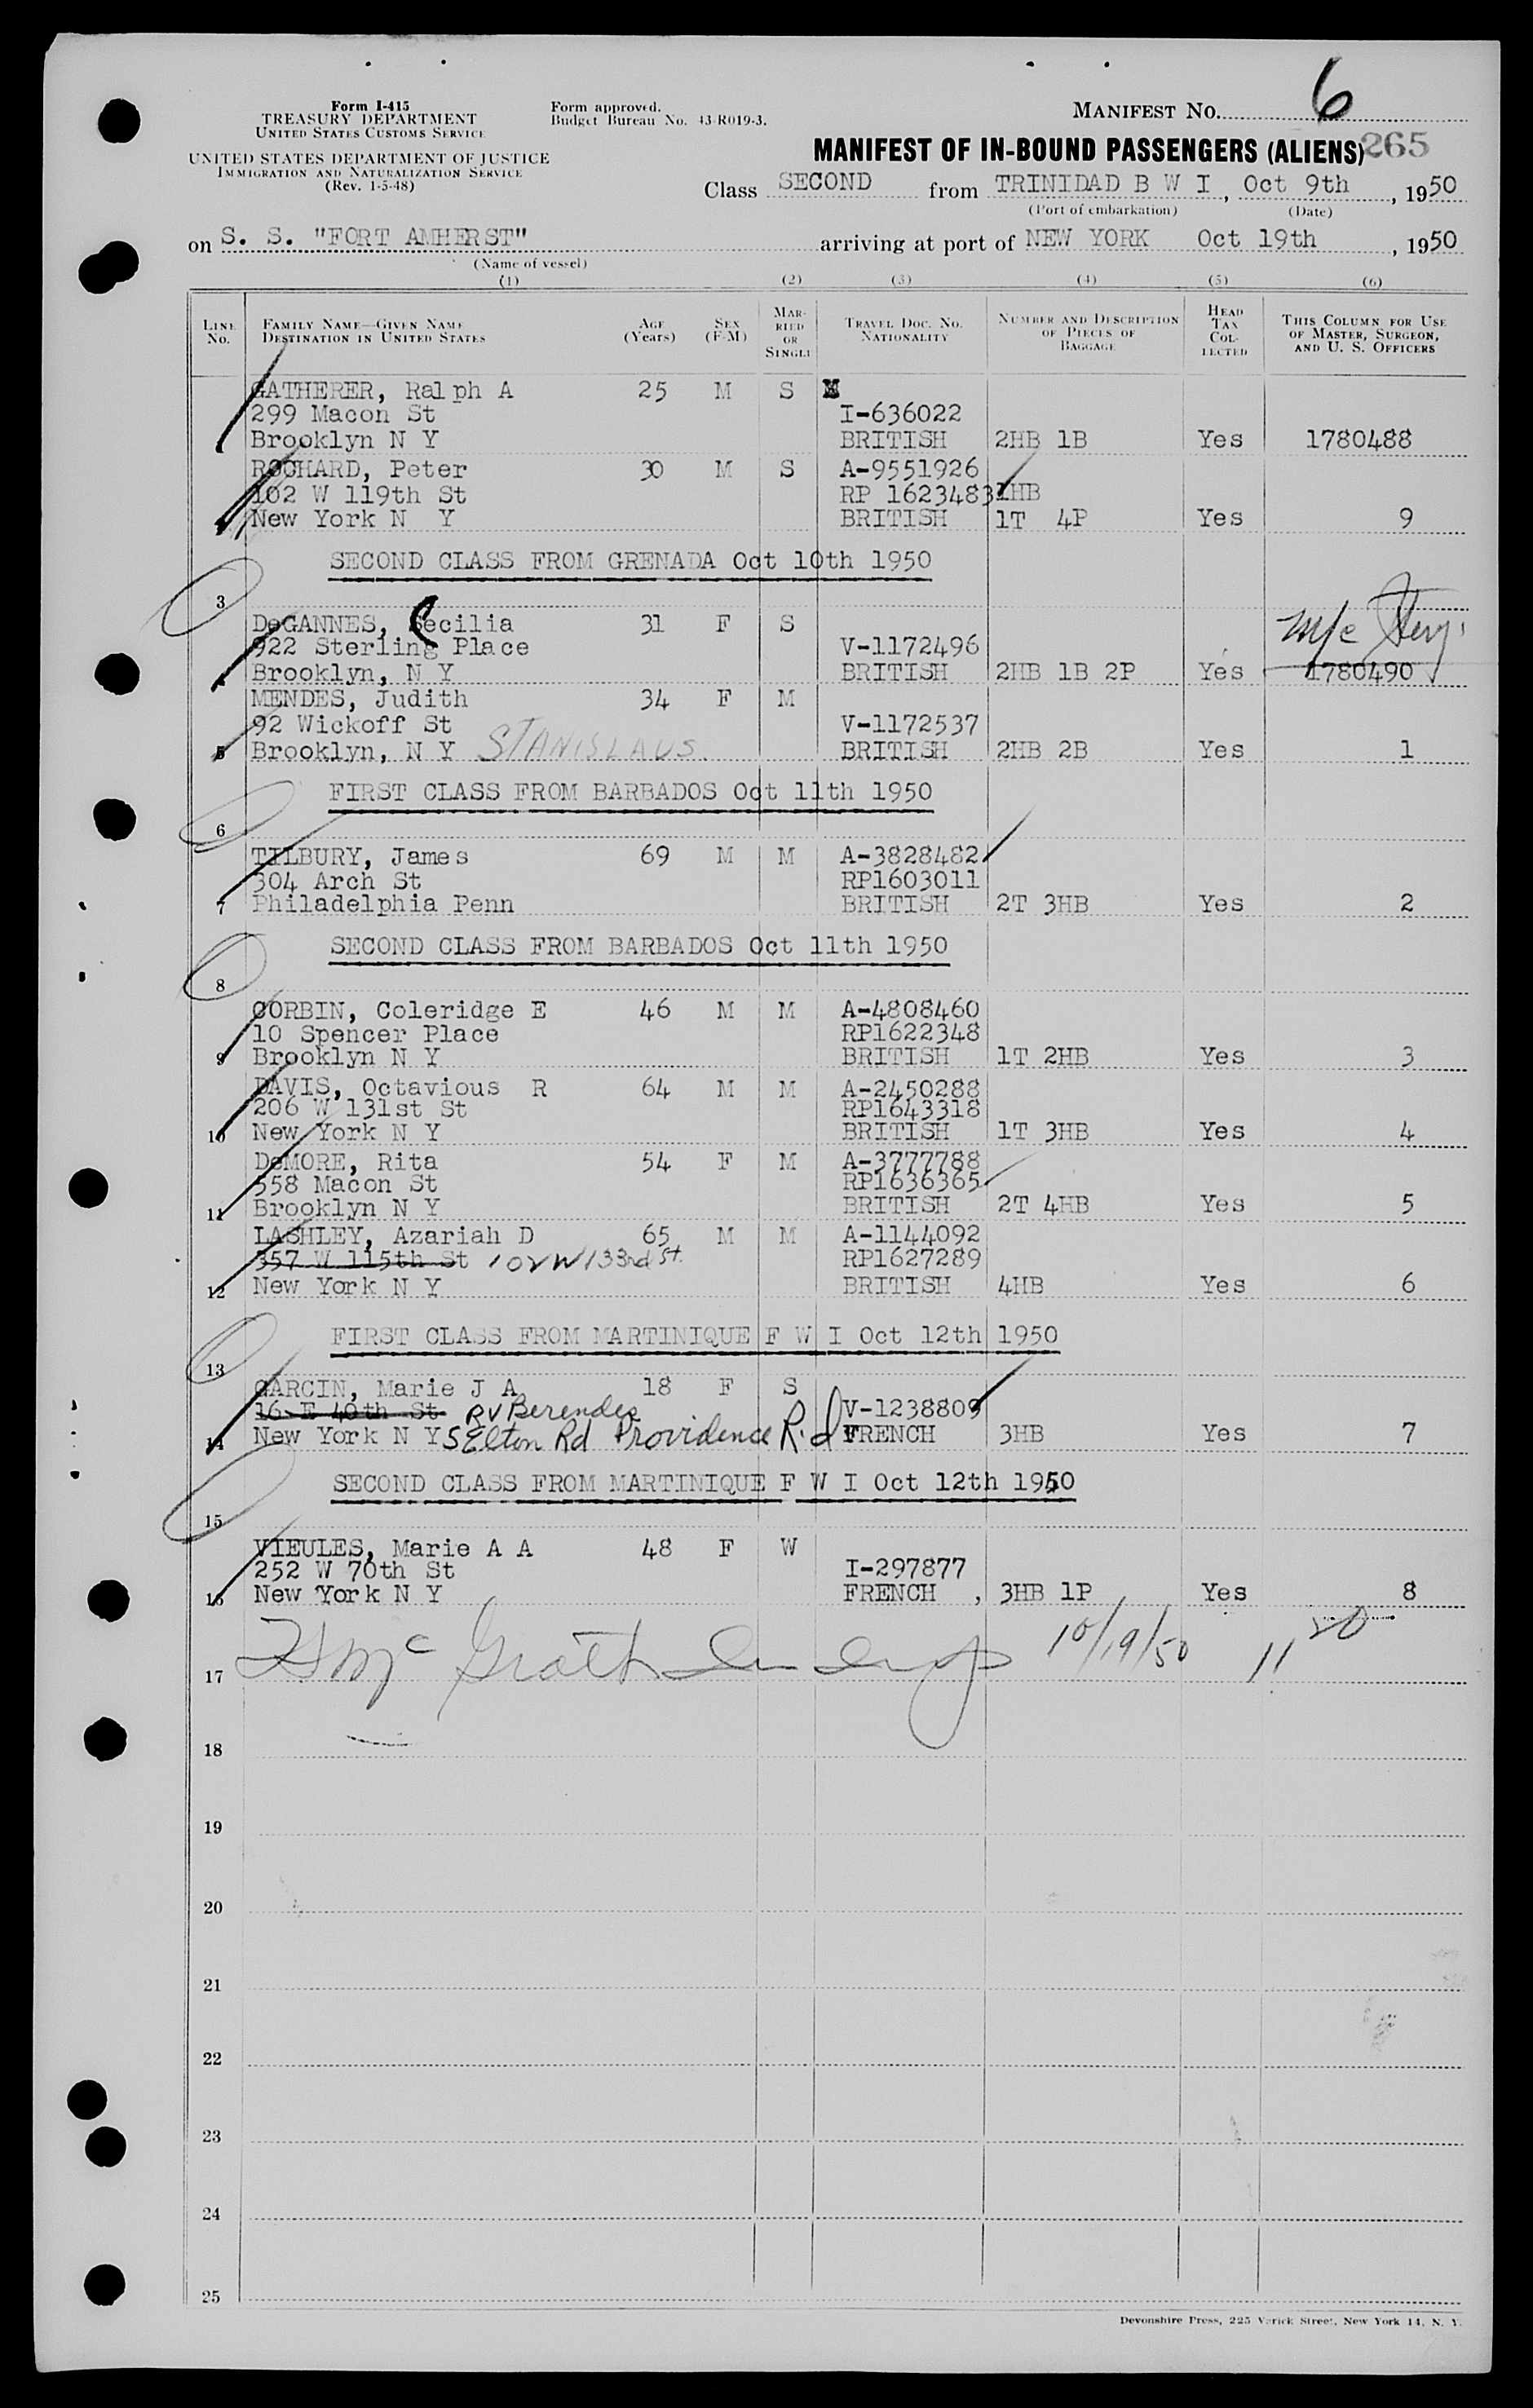 Form I-415
TREASURY DEPARTMENT
UNITED STATES CUSTOMS SERVICE
UNITED STATES DEPARTMENT OF JUSTICE
IMMIGRATION AND NATURALIZATION SERVICE
(Rev. 1-5-48)
Form approved.
Budget Bureau No. 43-R019-3.
MANIFEST No. 6
MANIFEST OF IN-BOUND PASSENGERS (ALIENS) 265
Class SECOND from TRINIDAD B W I, Oct 9th, 1950
(Port of embarkation) (Date)
on S. S. "FORT AMHERST" arriving at port of NEW YORK Oct 19th, 1950
(Name of vessel)
(1) (2) (3) (4) (5) (6)
LINE No. FAMILY NAME—GIVEN NAME DESTINATION IN UNITED STATES AGE (Years) SEX (F-M) MARRIED OR SINGLE TRAVEL DOC. NO. NATIONALITY NUMBER AND DESCRIPTION OF PIECES OF BAGGAGE HEAD TAX COLLECTED THIS COLUMN FOR USE OF MASTER, SURGEON, AND U. S. OFFICERS
GATHERER, Ralph A 25 M S
299 Macon St I-636022
Brooklyn N Y BRITISH 2HB 1B Yes 1780488
ROCHARD, Peter 30 M S A-9551926
102 W 119th St RP 1623483 1HB
New York N Y BRITISH 1T 4P Yes 9
SECOND CLASS FROM GRENADA Oct 10th 1950
3
DeGANNES, Cecilia 31 F S
922 Sterling Place V-1172496
Brooklyn, N Y BRITISH 2HB 1B 2P Yes 1780490
MENDES, Judith 34 F M
92 Wickoff St V-1172537
5 Brooklyn, N Y STANISLAUS BRITISH 2HB 2B Yes 1
FIRST CLASS FROM BARBADOS Oct 11th 1950
6
TILBURY, James 69 M M A-3828482
304 Arch St RP1603011
7 Philadelphia Penn BRITISH 2T 3HB Yes 2
SECOND CLASS FROM BARBADOS Oct 11th 1950
8
CORBIN, Coleridge E 46 M M A-4808460
10 Spencer Place RP1622348
9 Brooklyn N Y BRITISH 1T 2HB Yes 3
DAVIS, Octavious R 64 M M A-2450288
206 W 131st St RP1643318
10 New York N Y BRITISH 1T 3HB Yes 4
DeMORE, Rita 54 F M A-3777788
558 Macon St RP1636365
11 Brooklyn N Y BRITISH 2T 4HB Yes 5
LASHLEY, Azariah D 65 M M A-1144092
357 W 115th St 102 W 133rd St. RP1627289
12 New York N Y BRITISH 4HB Yes 6
FIRST CLASS FROM MARTINIQUE F W I Oct 12th 1950
13
GARCIN, Marie J A 18 F S
16 E 40th St RV Berendes V-1238809
14 New York N Y 5 Elton Rd Providence R.I FRENCH 3HB Yes 7
SECOND CLASS FROM MARTINIQUE F W I Oct 12th 1950
15
VIEULES, Marie A A 48 F W
252 W 70th St I-297877
16 New York N Y FRENCH , 3HB 1P Yes 8
10/19/50 11 20
17
18
19
20
21
22
23
24
25
Devonshire Press, 225 Varick Street, New York 14, N. Y.